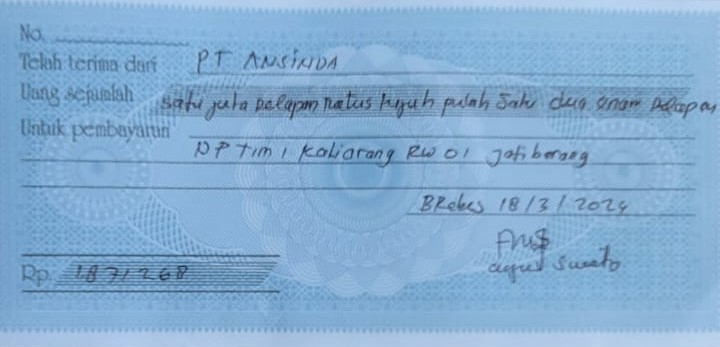 No.
Telah terima dari PT ANSINDA
Uang sejumlah satu juta delapan ratus tujuh puluh satu dua enam delapan
Untuk pembayaran
DP tim 1 Kaliarang RW 01 jatibarang
BRebes 18/3/2024
Rp. 1871268
agus